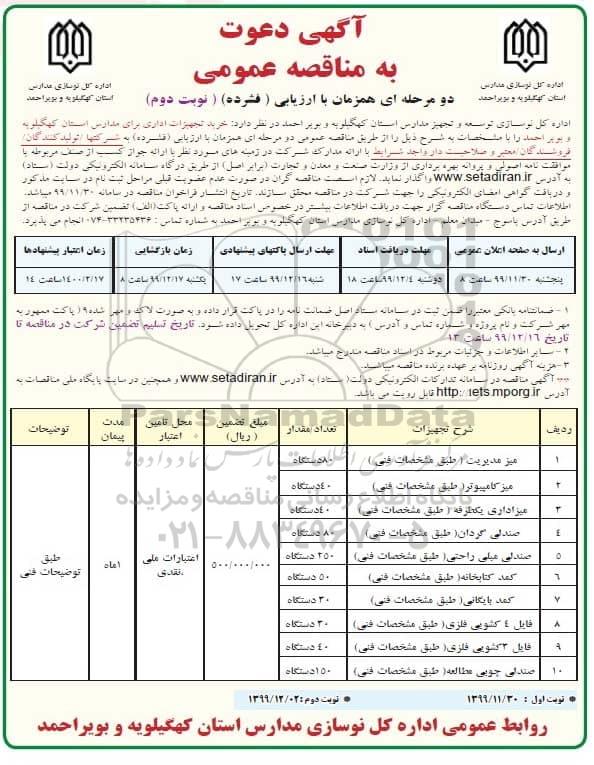 آگهی دعوت
به مناقصه عمومی
دو مرحله ای همزمان با ارزیابی ( فشرده) ( نوبت دوم)
اداره کل نوسازی مدارس
استان کهگیلویه و بویراحمد
اداره کل نوسازی مدارس
استان کهگیلویه و بویراحمد
اداره کل نوسازی توسعه و تجهیز مدارس استان کهگیلویه و بویر احمد در نظر دارد: خرید تجهیزات اداری برای مدارس استان کهگیلویه
و بویر احمد را با مشخصات به شرح ذیل را از طریق مناقصه عمومی دو مرحله ای همزمان با ارزیابی (فشرده) به شرکتها /تولیدکنندگان/
فروشندگان/معتبر و صلاحیت دار واجد شرایط با ارائه مدارک شرکت در زمینه های مورد نظر با ارائه جواز کسب از صنف مربوطه یا
موافقت نامه اصولی و پروانه بهره برداری از وزارت صنعت و معدن و تجارت (برابر اصل) از طریق درگاه سامانه الکترونیکی دولت (ستاد)
به آدرس www.setadiran.ir واگذار نماید. لازم است مناقصه گران در صورت عدم عضویت قبلی مراحل ثبت نام در سایت مذکور
و دریافت گواهی امضای الکترونیکی را جهت شرکت در مناقصه محقق سازند. تاریخ انتشار فراخوان مناقصه در سامانه ۹۹/۱۱/۳۰ میباشد.
اطلاعات تماس دستگاه مناقصه گزار جهت دریافت اطلاعات بیشتر در خصوص اسناد مناقصه و ارائه پاکت(الف) تضمین شرکت در مناقصه از
طریق آدرس یاسوج - میدان معلم - اداره کل نوسازی مدارس استان کهگیلویه و بویر احمد به شماره تماس : ۳۳۲۳۵۴۳۶-۰۷۴ انجام می پذیرد.
ارسال به صفحه اعلان عمومی | مهلت دریافت اسناد | مهلت ارسال پاکتهای پیشنهادی | زمان بازگشایی | زمان اعتبار پیشنهادها
پنجشنبه ۹۹/۱۱/۳۰ ساعت ۸ | دوشنبه ۹۹/۱۲/۴ساعت ۱۸ | شنبه۹۹/۱۲/۱۶ ساعت ۱۷ | یکشنبه ۹۹/۱۲/۱۷ساعت ۸ | ۱۴۰۰/۲/۱۷ساعت ۱۴
۱ - ضمانتنامه بانکی معتبرراضمن ثبت در سامانه ستاد اصل ضمانت نامه را در پاکت قرار داده و به صورت لاک و مهر شده۹ ( پاکت ممهور به
مهر شرکت و نام پروژه و شماره تماس و آدرس ) به دبیرخانه این اداره کل تحویل داده شود. تاریخ تسلیم تضمین شرکت در مناقصه تا
تاریخ ۹۹/۱۲/۱۶ ساعت ۱۳
۲ - سایر اطلاعات و جزئیات مربوط در اسناد مناقصه مندرج میباشد.
۳ -هزینه آگهی روزنامه بر عهده برنده مناقصه میباشد.
آگهی مناقصه در سامانه تدارکات الکترونیکی دولت( ستاد) به آدرس www.setadiran.ir و همچنین در سایت پایگاه ملی مناقصات به
آدرس http://iets.mporg.ir قابل رویت می باشد.
ردیف | شرح تجهیزات | تعداد/مقدار | مبلغ تضمین ( ریال) | محل تامین اعتبار | مدت پیمان | توضیحات
۱ | میز مدیریت( طبق مشخصات فنی ) | ۸۰دستگاه
۲ | میزکامپیوتر( طبق مشخصات فنی) | ۴۰دستگاه
۳ | میزاداری یکطرفه ( طبق مشخصات فنی) | ۴۰دستگاه
۴ | صندلی گردان( طبق مشخصات فنی) | ۸۰ دستگاه
۵ | صندلی مبلی راحتی( طبق مشخصات فنی) | ۲۵۰ دستگاه | ۵۰۰/۰۰۰/۰۰۰ | اعتبارات ملی ،نقدی | ۱ماه | طبق توضیحات فنی
۶ | کمد کتابخانه( طبق مشخصات فنی) | ۵۰ دستگاه
۷ | کمد بایگانی( طبق مشخصات فنی) | ۳۰ دستگاه
۸ | فایل ۴ کشویی فلزی( طبق مشخصات فنی) | ۳۰ دستگاه
۹ | فایل ۳کشویی فلزی( طبق مشخصات فنی) | ۴۰ دستگاه
۱۰ | صندلی چوبی مطالعه( طبق مشخصات فنی) | ۱۵۰دستگاه
نوبت اول : ۱۳۹۹/۱۱/۳۰
نوبت دوم :۱۳۹۹/۱۲/۰۲
روابط عمومی اداره کل نوسازی مدارس استان کهگیلویه و بویراحمد
ParsNamadData
پایگاه اطلاع رسانی مناقصه و مزایده
۰۲۱-۸۸۳۴۹۶۷۰-۵